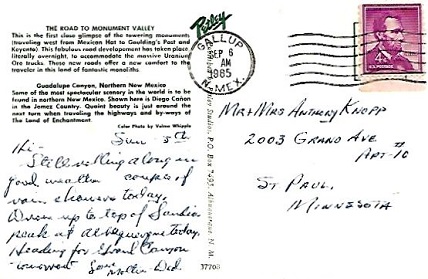 THE ROAD TO MONUMENT VALLEY
This is the first close glimpse of the towering monuments
(traveling west from Mexican Hat to Goulding's Post and
Kayenta). This fabulous road development has taken place
literally overnight, to accommodate the massive Uranium
Ore trucks. These new roads offer a new comfort to the
traveler in this land of fantastic monoliths.
Guadalupe Canyon, Northern New Mexico
Some of the most spectacular scenery in the world is to be
found in northern New Mexico. Shown here is Diego Cañon
in the Jemez Country. Quaint beauty is just around the
next turn when traveling the highways and by-ways of
The Land of Enchantment.
Color Photo by Valma Whipple
Petley
GALLUP
SEP 6
AM
1985
N. MEX.
4¢
U.S. POSTAGE
Studios, P.O. Box Albuquerque N. M.
Sun 5th
Hi-
Still rolling along in
good weather couple of
rain showers today.
Drove up to top of Sandia
peak at Albuquerque today.
Heading for Grand Canyon
tomorrow Love
Mother Dad.
37703
Mr & Mrs Anthony Knopp
2003 Grand Ave
Apt-10
St Paul,
Minnesota